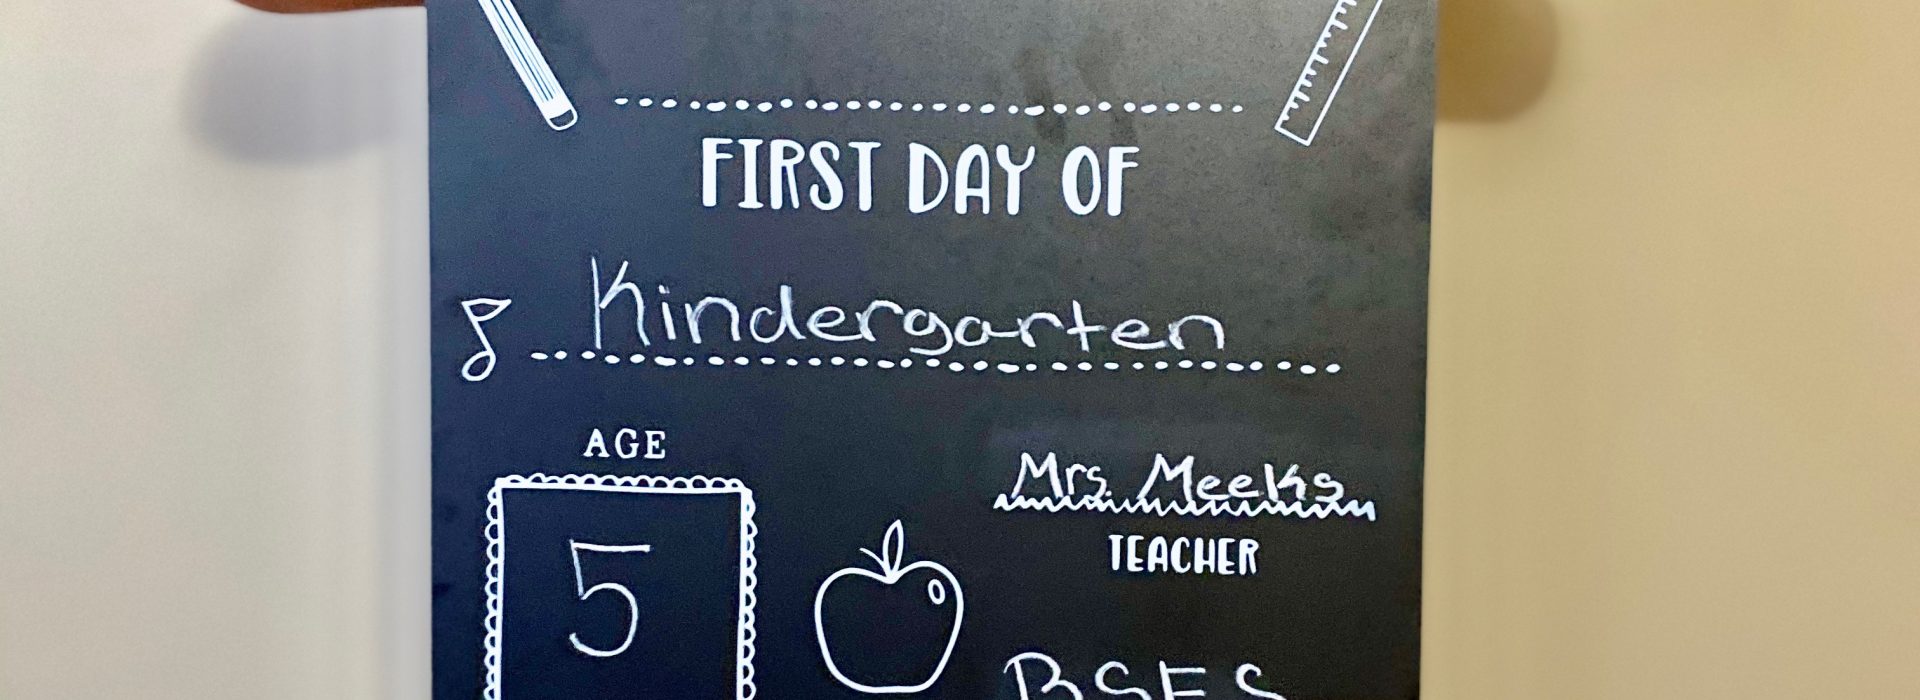 FIRST DAY OF
Kindergarten
AGE
5
Mrs. Meeks
TEACHER
BSES